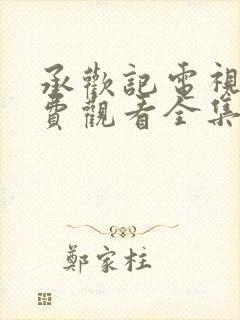 承歡記電視
費觀看全集
鄭家柱